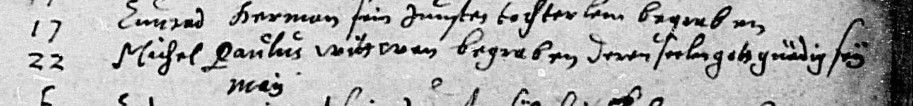 17 Cunrad Herman sein Jungstes tochterlein begraben
22 Michel Paulus witwen begraben deren seelen gott gnedig sey
may